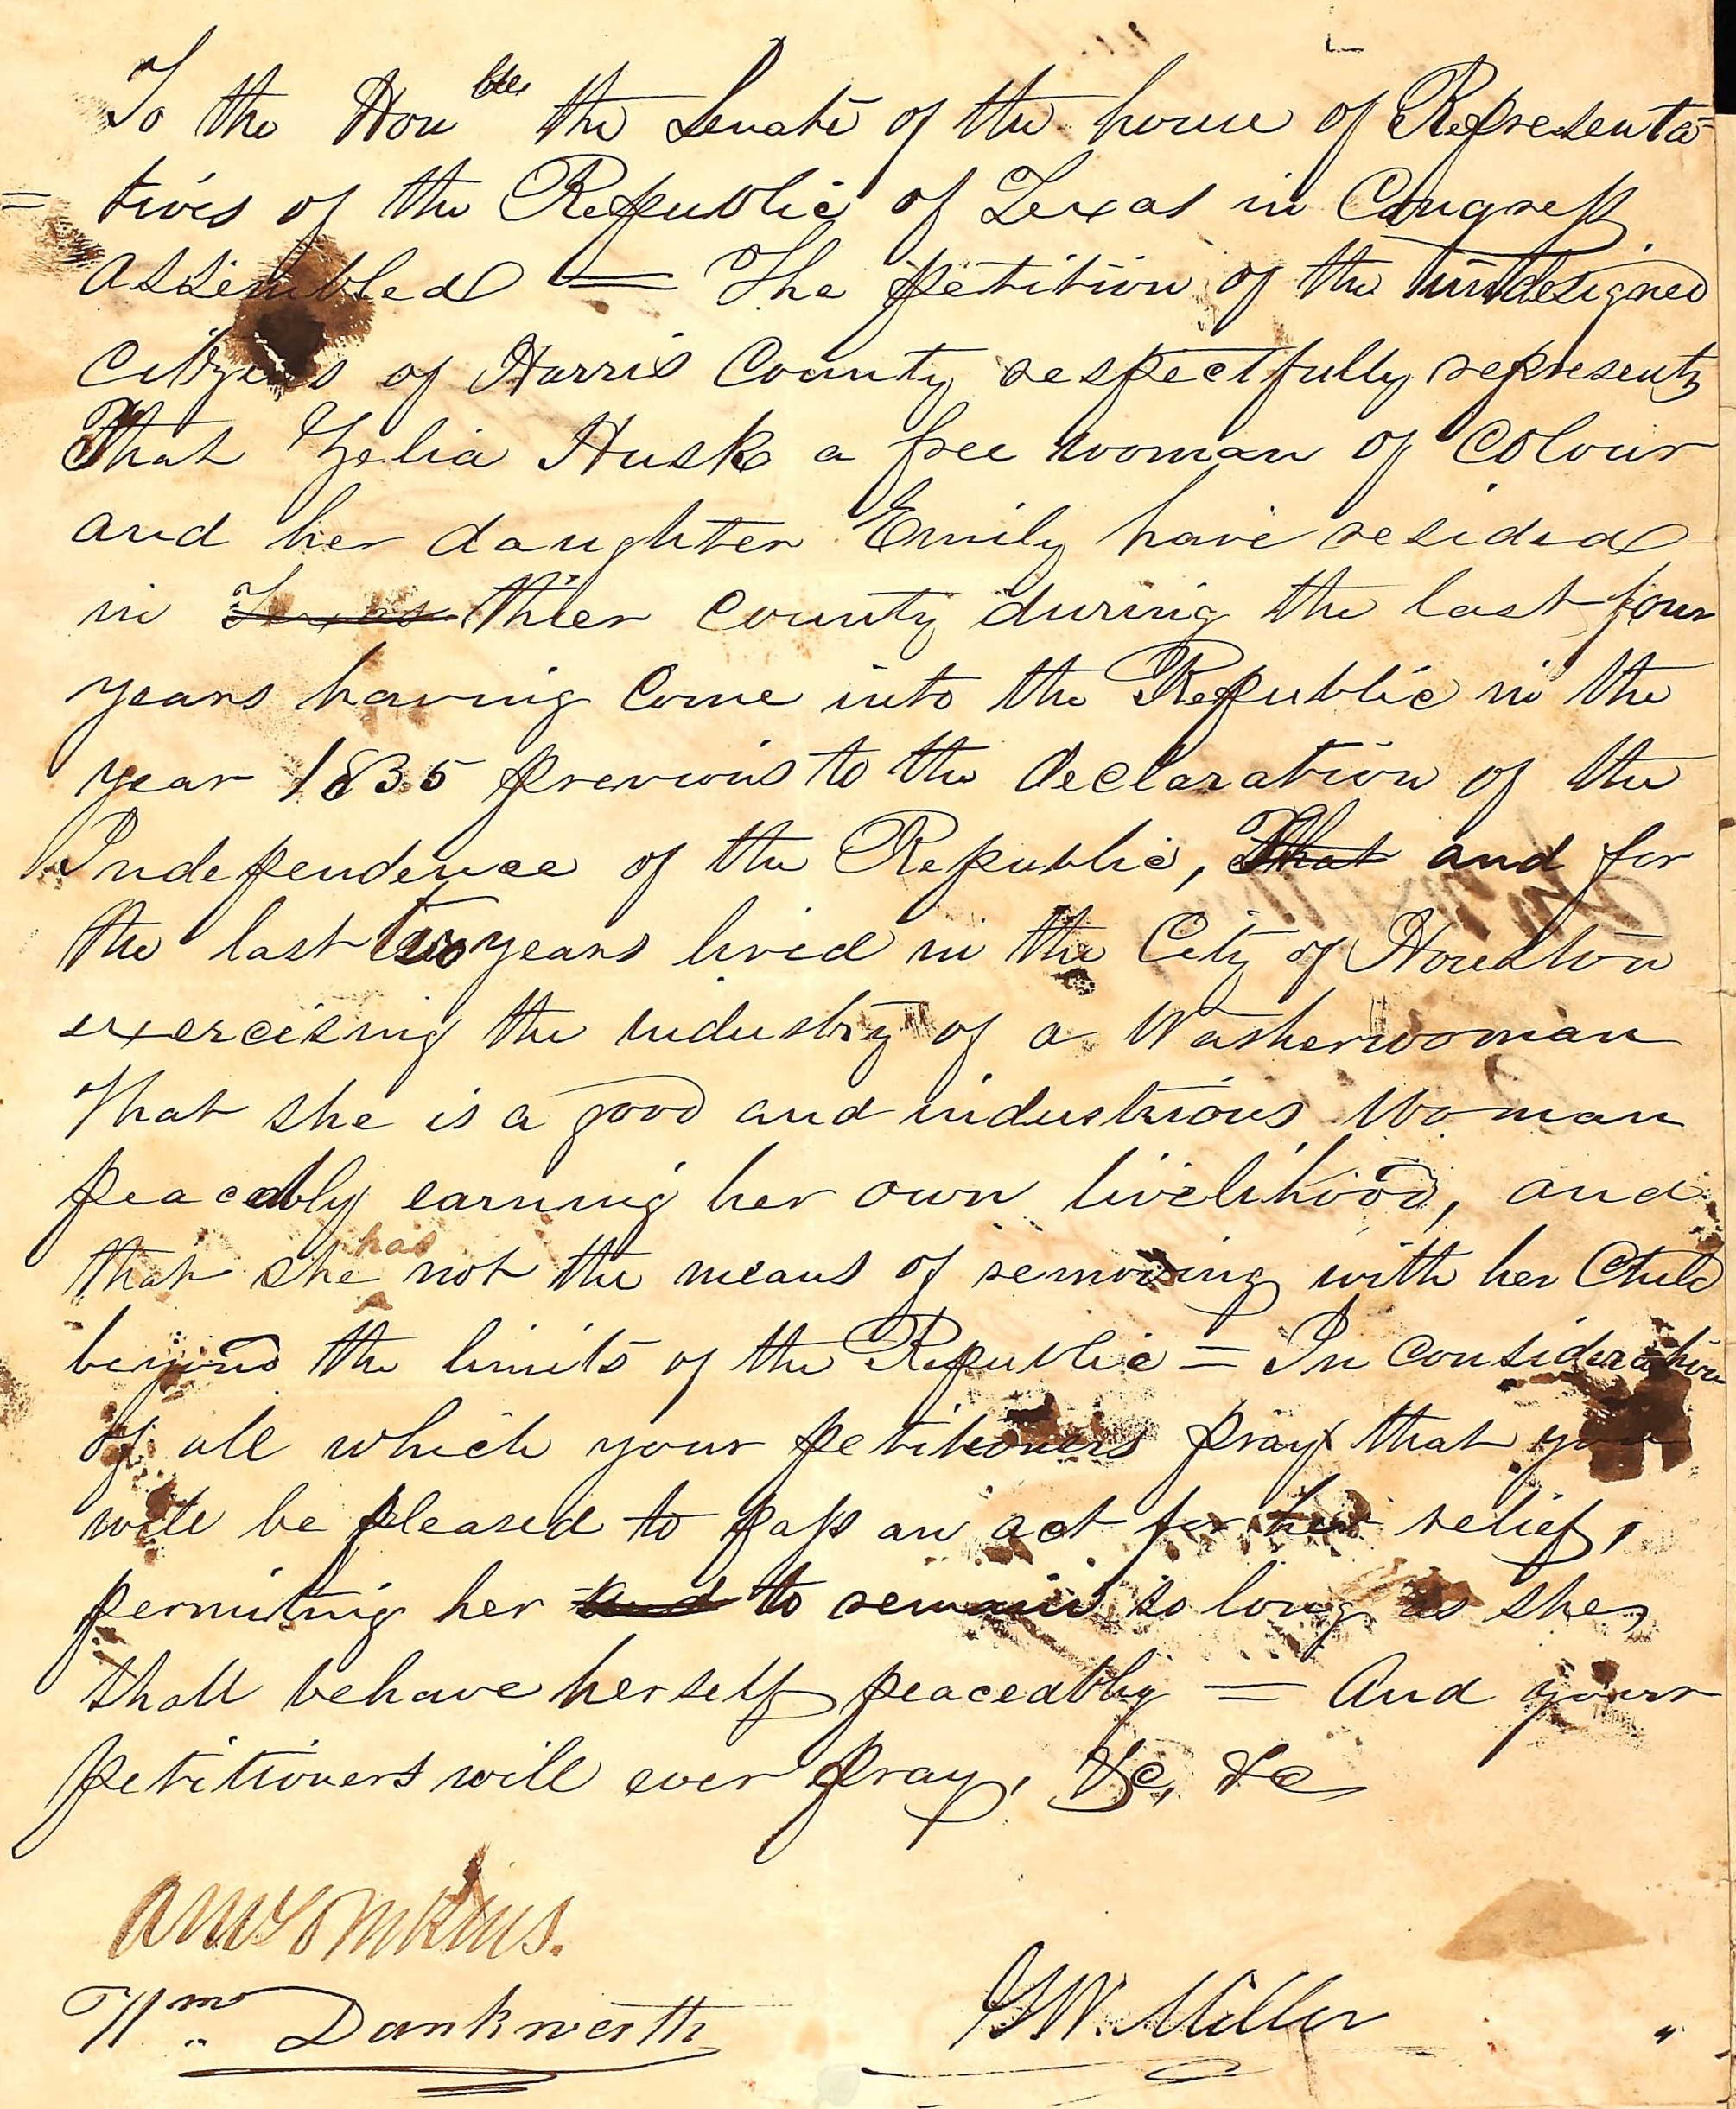 To the Hon ble the Senate of the house of Representa=
= tives of the Republic of Texas in Congress
assembled = The petition of the undesigned
Citizens of Harris County respectfully represents
That Zelia Husk a free woman of Colour
and her daughter Emily have resided
in Texas thier County during the last four
years having Come into the Republic in the
year 1835 previous to the declaration of the
Independence of the Republic, That and for
the last two years lived in the City of Houston
exercising the industry of a Washerwoman
That she is a good and industrious Woman
peaceably earning her own livelihood, and
that she has not the means of removing with her Child
beyond the limits of the Republic = In consideration
of all which your petitioners pray that you
will be pleased to pass an act for her relief,
permiting her and to remain so long as she
shall behave herself peaceably = And your
petitioners will ever pray, &c, &c
A M Tomkins.
Wm Dankwerth
G W. Miller